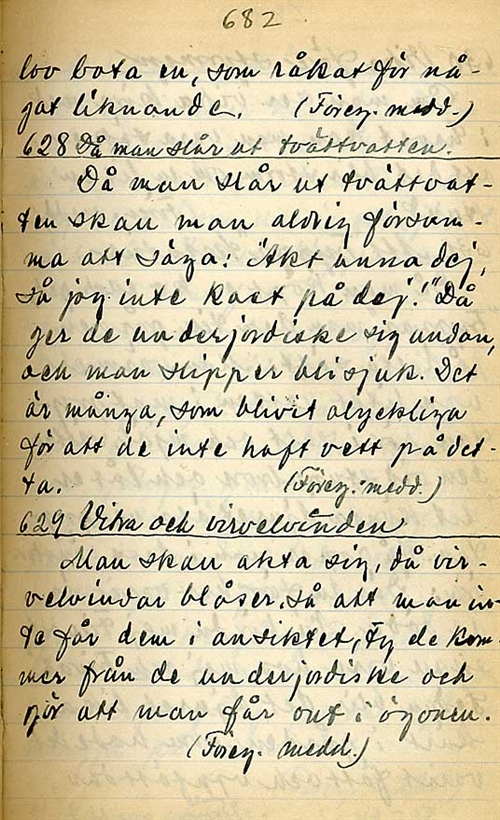 682
lov bota en, som råkat för nå-
got liknande. (Föreg. medd.)
628 Då man slår ut tvättvatten.
Då man slår ut tvättvat-
ten skau man aldrig försum-
ma att säga: "Akt unna dej,
så jag inte kast på dej!" Då
ger de underjordiske sig undan,
och man slipper bli sjuk. Det
är många, som blivit olyckliga
för att de inte haft vett på det-
ta. (Föreg. medd.)
629 Vitra och virvelvinden
Man skau akta sig, då vir-
velvindar blåser, så att man in-
te får dem i ansiktet, ty de kom-
mer från de underjordiske och
gör att man får ont i ögonen.
(Föreg. medd.)